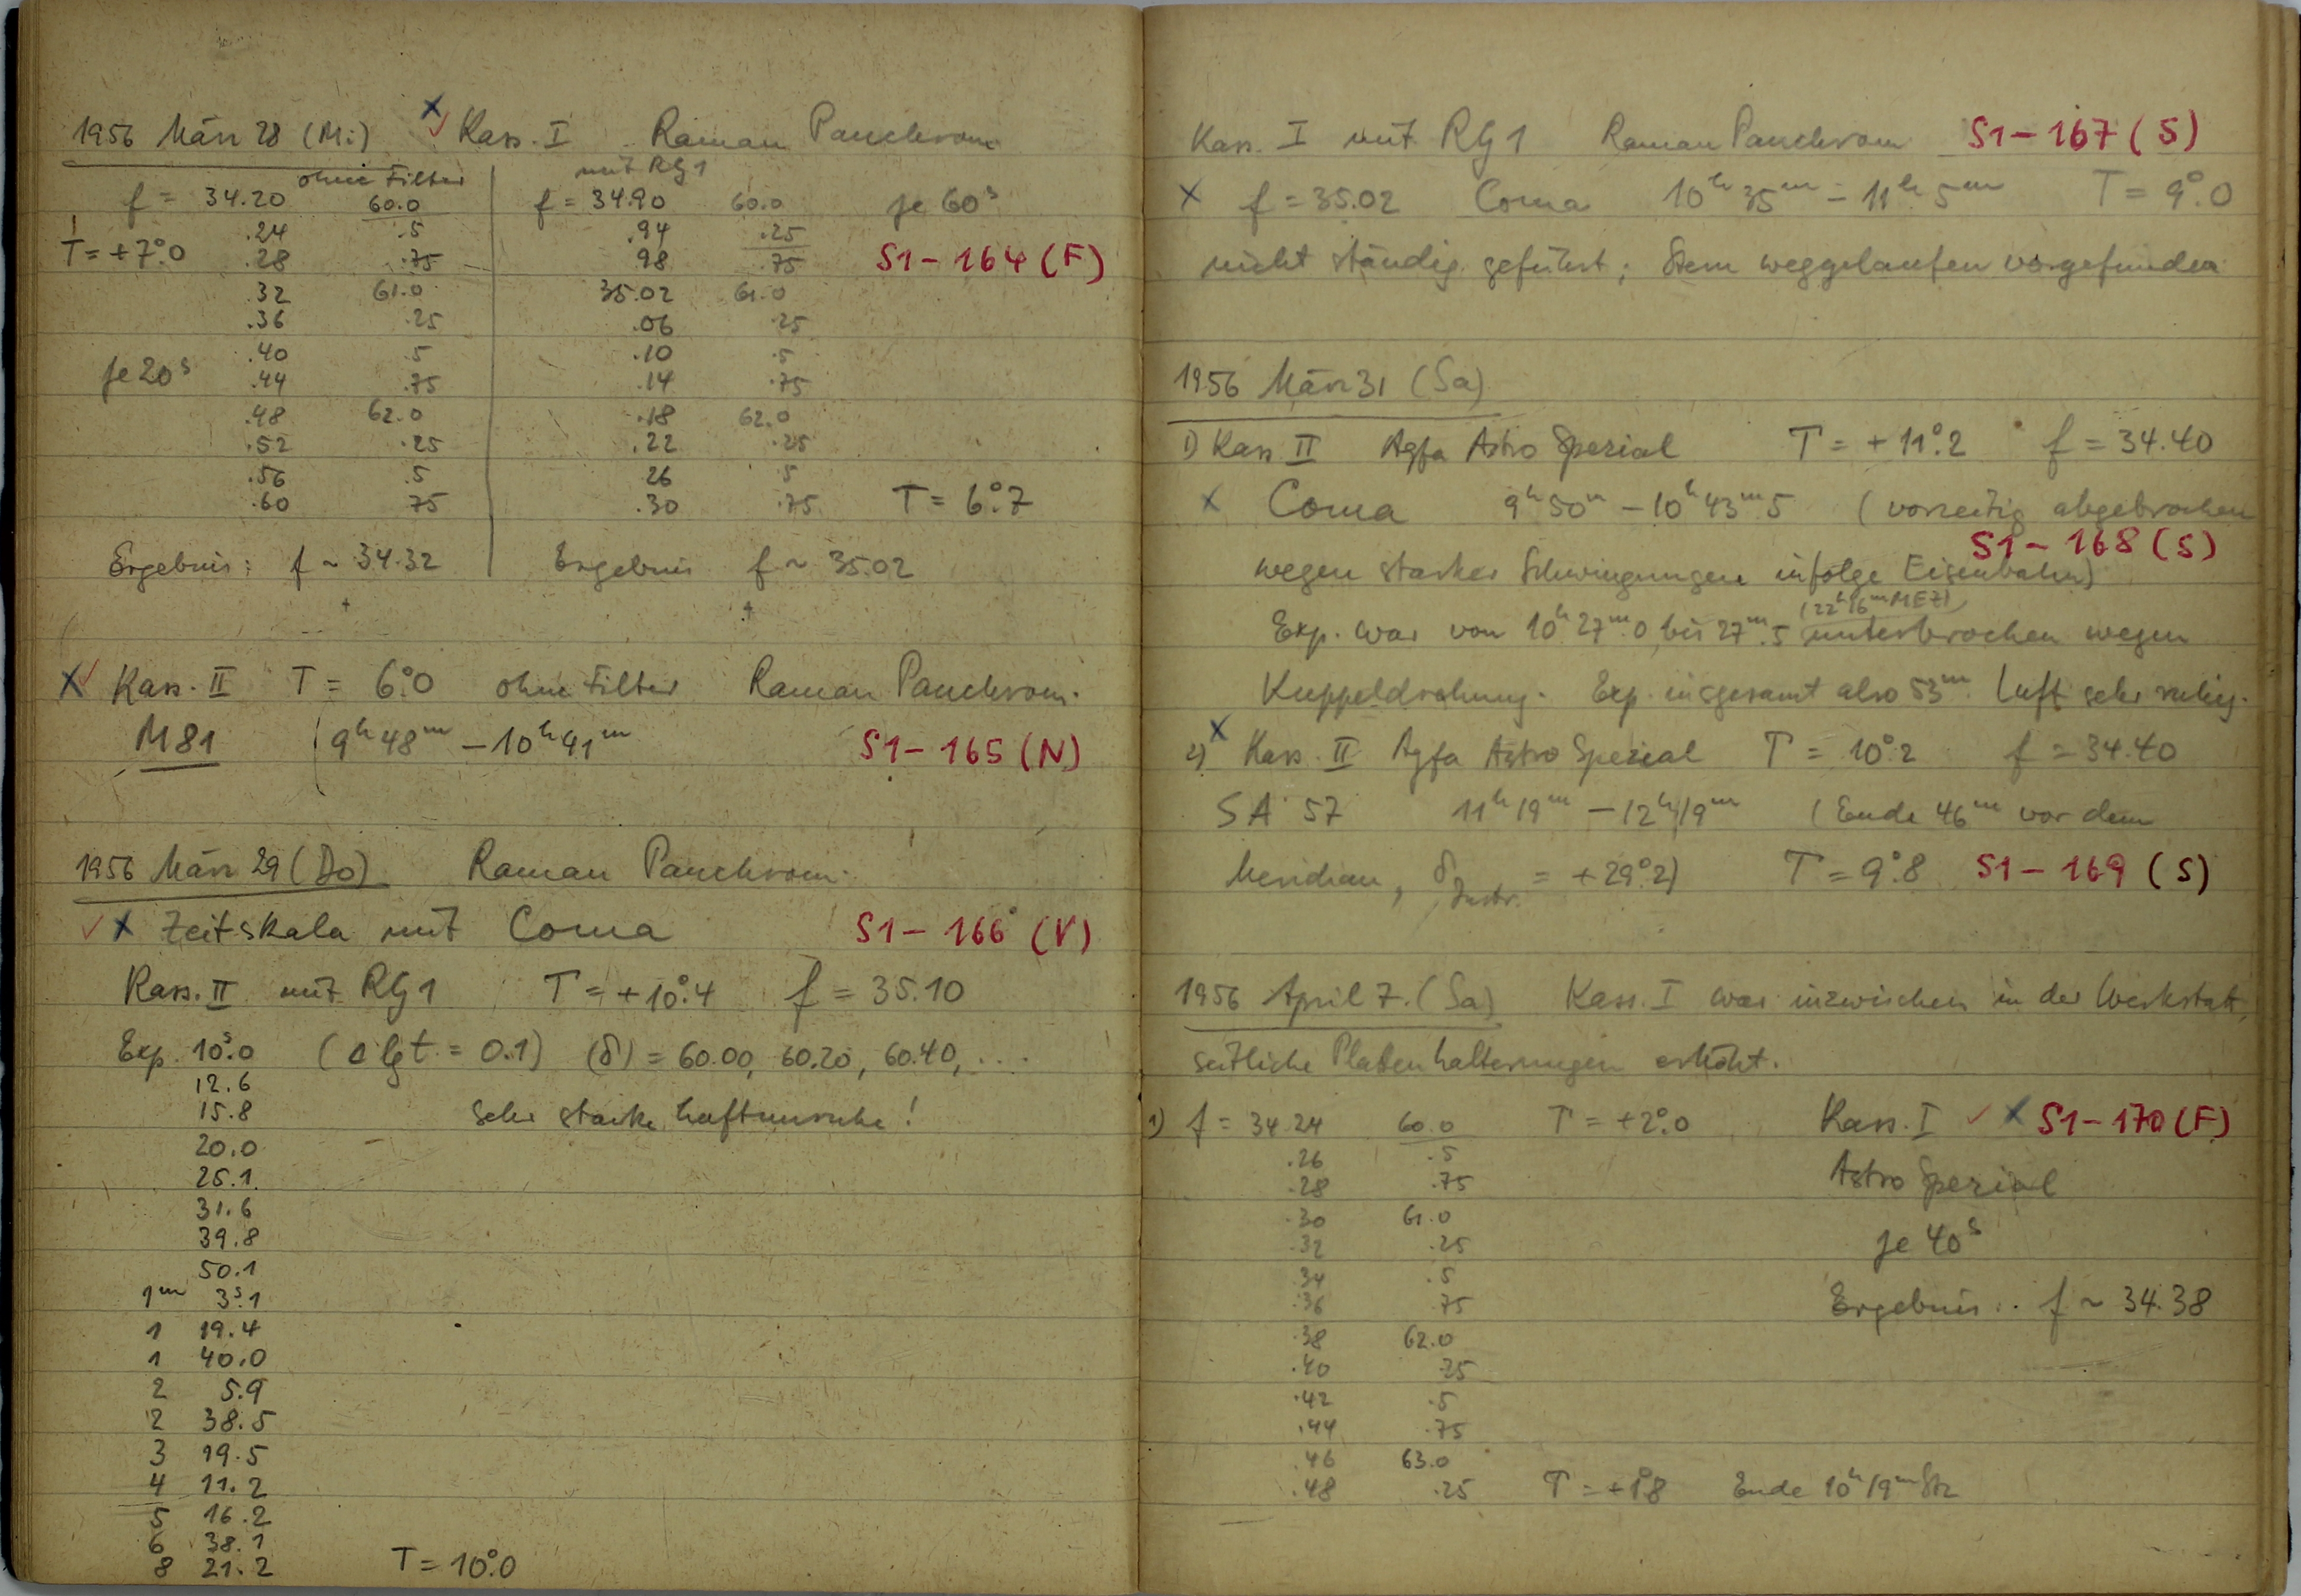 1956 März 28 (Mi) Kass. I Raman Panchrom.
ohne Filter mit RG1
f = 34.20 60.0 f = 34.90 60.0 je 60s
.24 .5 .94 .25
T = +7°.0 .28 .75 98 .75 S1-164 (F)
.32 61.0 35.02 61.0
.36 .25 .06 .25
.40 .5 .10 .5
je 20s .44 .75 .14 .75
.48 62.0 .18 62.0
.52 .25 .22 .25
.56 .5 26 5
.60 75 .30 .75 T = 6°.7
Ergebnis: f ~ 34.32 Ergebnis f ~ 35.02
Kass. II T = 6°.0 ohne Filter Raman Panchrom.
M81 9h 48m – 10h 41m S1-165 (N)
1956 März 29 (Do) Raman Panchrom.
Zeitskala mit Coma S1-166 (V)
Kass. II mit RG1 T = +10°.4 f = 35.10
Exp. 10s.0 (Δ lg t = 0.1) (δ) = 60.00, 60.20, 60.40, ...
12.6
15.8 sehr starke Luftunruhe!
20.0
25.1
31.6
39.8
50.1
1m 3s.1
1 19.4
1 40.0
2 5.9
2 38.5
3 19.5
4 11.2
5 16.2
6 38.1
8 21.2 T = 10°.0
Kass. I mit RG1 Raman Panchrom S1-167 (S)
f = 35.02 Coma 10h 35m – 11h 5m T = 9°.0
nicht ständig geführt; Stern weggelaufen vorgefunden
1956 März 31 (Sa)
1) Kass II Agfa Astro Spezial T = +11°.2 f = 34.40
Coma 9h 50m – 10h 43m.5 (vorzeitig abgebrochen
S1-168 (S)
wegen starker Schwingungen infolge Eisenbahn)
(22h 16m MEZ)
Exp. war von 10h 27m.0 bis 27m.5 unterbrochen wegen
Kuppeldrehung. Exp. insgesamt also 53m. Luft sehr ruhig.
2) Kass. II Agfa Astro Spezial T = 10°.2 f = 34.40
SA 57 11h 19m – 12h 19m (Ende 46m vor dem
Meridian, δInstr. = +29°.2) T = 9°.8 S1-169 (S)
1956 April 7. (Sa) Kass. I war inzwischen in der Werkstatt,
seitliche Plattenhalterungen erhöht.
1) f = 34.24 60.0 T = +2°.0 Kass. I S1-170 (F)
.26 .5
.28 .75 Astro Spezial
.30 61.0
.32 .25 je 40s
34 .5
.36 75 Ergebnis: f ~ 34.38
.38 62.0
.40 25
.42 .5
.44 .75
.46 63.0
.48 .25 T = +1°.8 Ende 10h 19m Stz